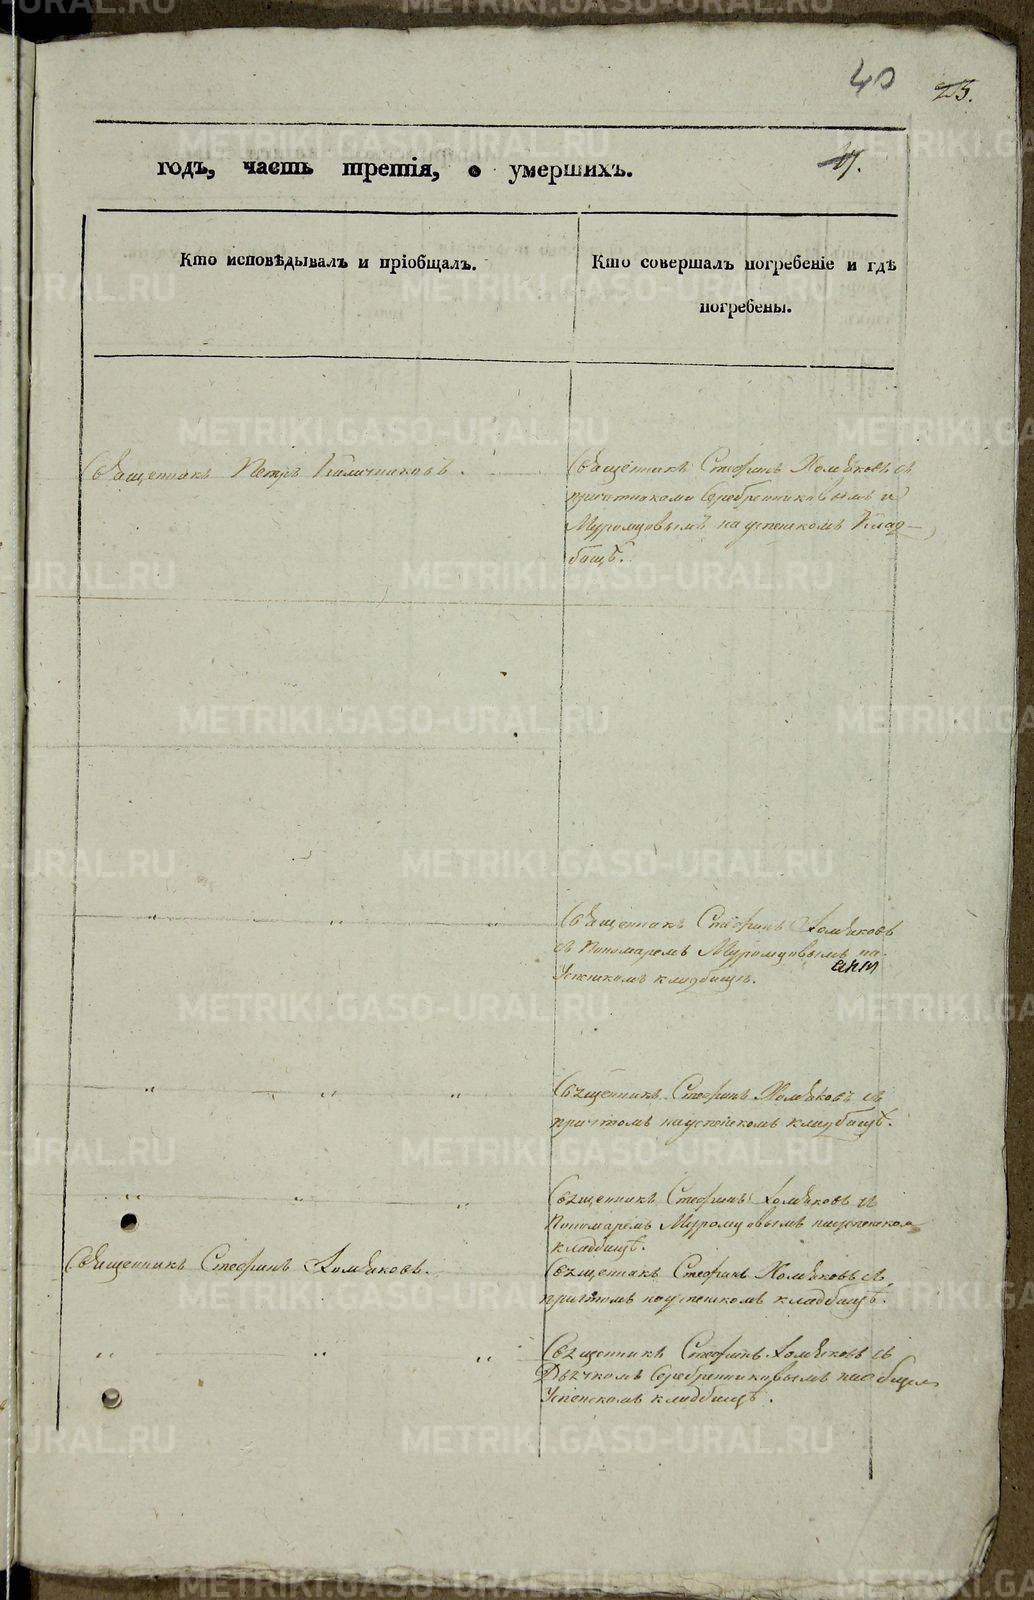 40
23.
годъ, часть третія, о умершихъ.
17.
Кто исповѣдывалъ и пріобщалъ.
Кто совершалъ погребеніе и гдѣ
погребены.
Священникъ Петръ
Священникъ Стефанъ Хомяковъ съ
причетниками Серебренниковымъ и
Муромцовымъ на успенскомъ клад-
бищѣ.
" " "
Священникъ Стефанъ Хомяковъ
съ Пономаремъ Муромцовымъ на
Успенскомъ кладбищѣ.
" " "
Священникъ Стефанъ Хомяковъ съ
причтомъ на успенскомъ кладбищѣ.
" " "
Священникъ Стефанъ Хомяковъ съ
Пономаремъ Муромцовымъ на успенском
кладбищѣ.
Священникъ Стефанъ Хомяковъ.
Священникъ Стефанъ Хомяковъ съ
причтомъ на успенскомъ кладбищѣ.
" " "
Священникъ Стефанъ Хомяковъ съ
Дьячкомъ Серебренниковымъ на общем
Успенскомъ кладбищѣ.
METRIKI.GASO-URAL.RU